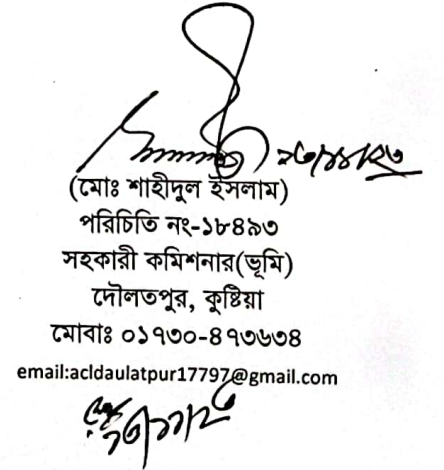 (মোঃ শাহীদুল ইসলাম)
পরিচিতি নং-১৮৪৯৩
সহকারী কমিশনার(ভূমি)
দৌলতপুর, কুষ্টিয়া
মোবাঃ ০১৭৩০-৪৭৩৬৩৪
email:acldaulatpur17797@gmail.com